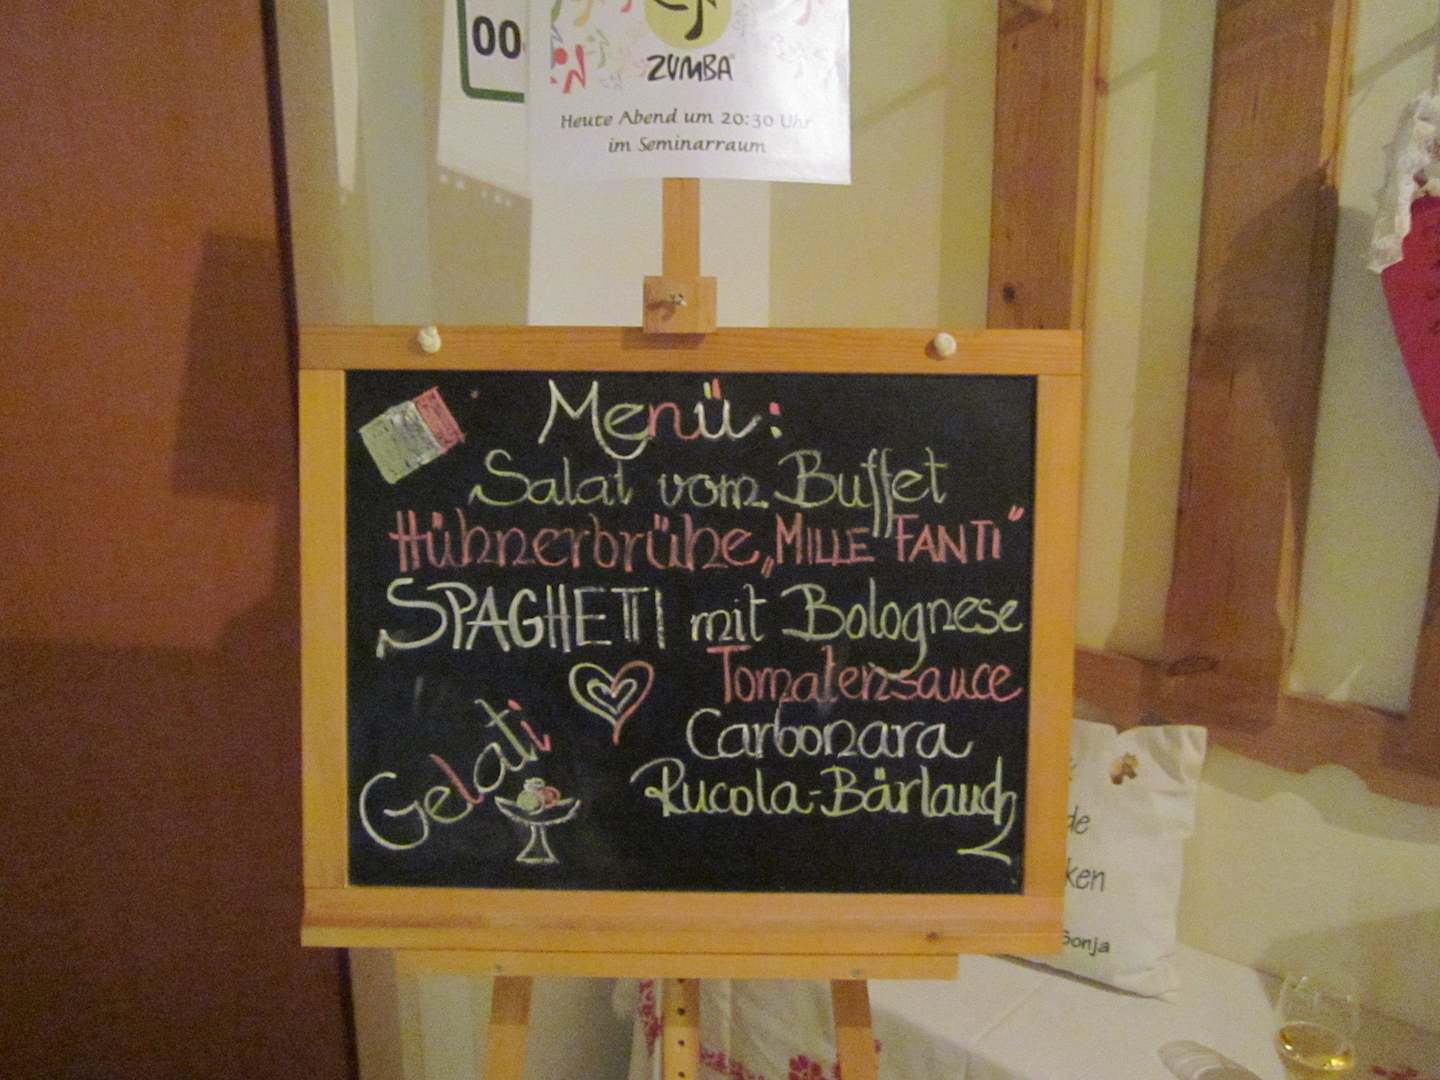 00
ZUMBA
Heute Abend um 20:30 Uhr
im Seminarraum
Menü:
Salat vom Buffet
Hühnerbrühe „MILLE FANTI"
SPAGHETTI mit Bolognese
Tomatensauce
Carbonara
Rucola-Bärlauch
Gelati
de
ken
Sonja